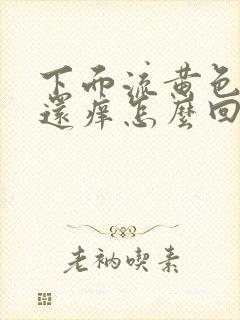 下面流黄色
還痒怎麼回
老衲喫素